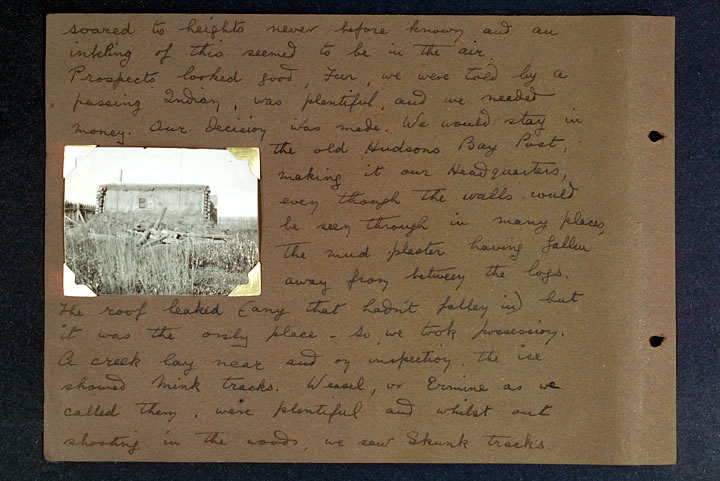 soared to heights never before known and an
inkling of this seemed to be in the air.
Prospects looked good, Fur, we were told by a
passing Indian, was plentiful, and we needed
money. Our decision was made. We would stay in
the old Hudsons Bay Post,
making it our Headquarters,
even though the walls could
be seen through in many places,
the mud plaster having fallen
away from between the logs.
The roof leaked (any that hadn't fallen in) but
it was the only place - so we took possession.
A creek lay near and on inspection, the ice
showed Mink tracks. Weasel, or Ermine as we
called them, were plentiful and whilst out
shooting in the woods, we saw Skunk tracks.